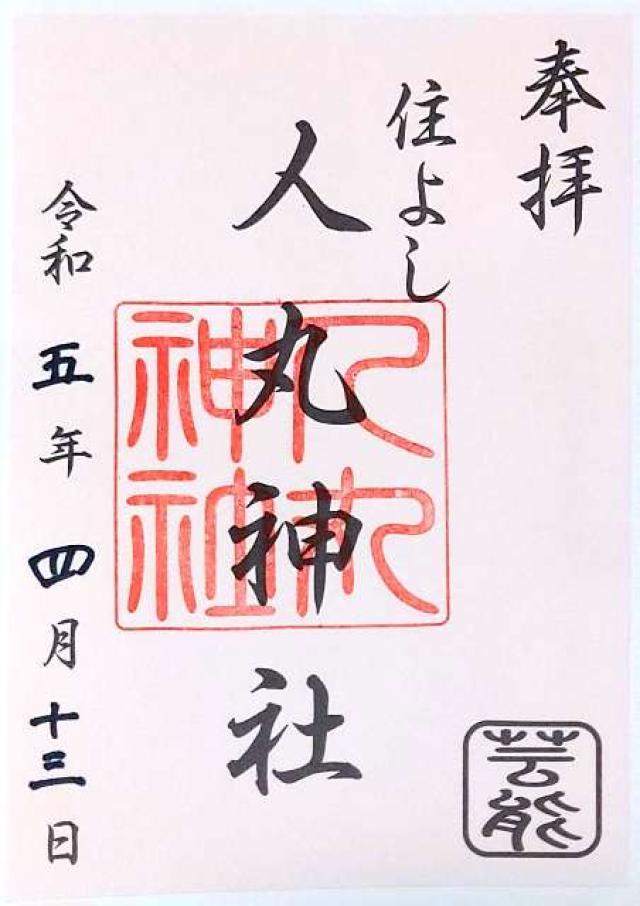 奉拝
住よし
人丸神社
人丸神社
令和五年四月十三日
芸能